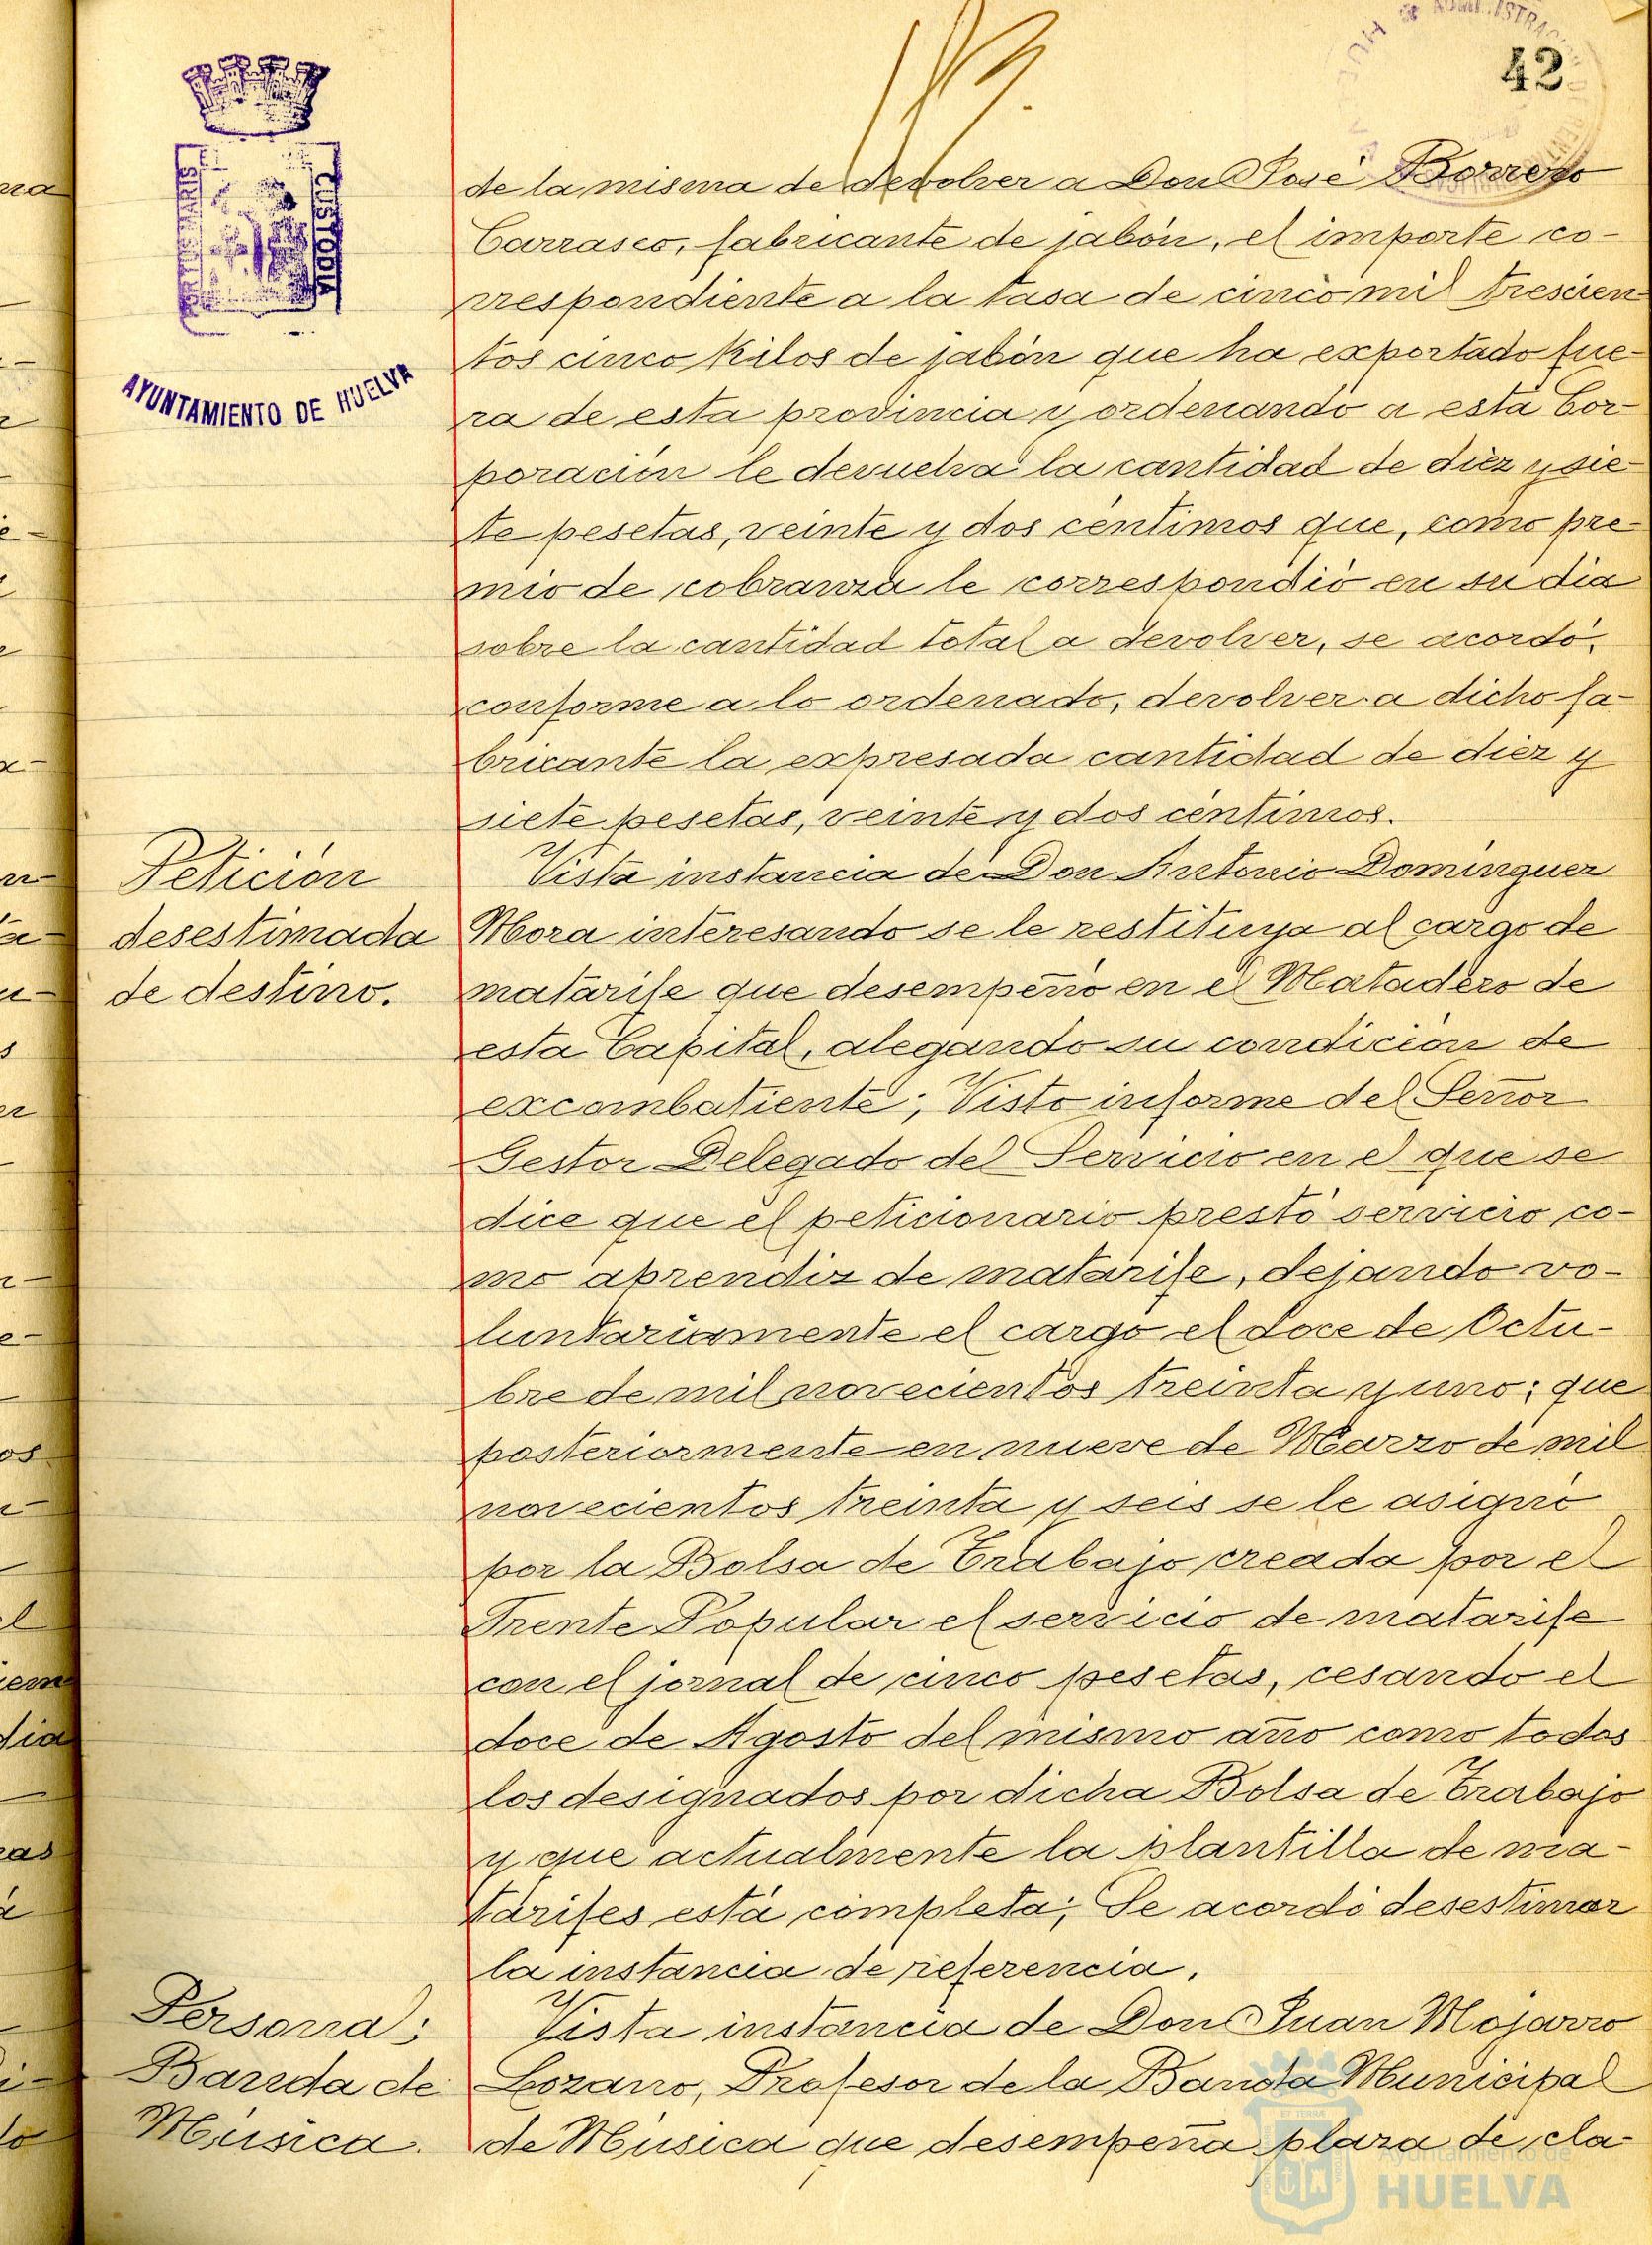 42
PORTUS MARIS
CUSTODIA
AYUNTAMIENTO DE HUELVA
de la misma de devolver a Don José Borrero
Carrasco, fabricante de jabón, el importe co-
rrespondiente a la tasa de cinco mil trescien-
tos cinco kilos de jabón que ha exportado fue-
ra de esta provincia y ordenando a esta Cor-
poración le devuelva la cantidad de diez y sie-
te pesetas, veinte y dos céntimos que, como pre-
mio de cobranza le correspondió en su dia
sobre la cantidad total a devolver, se acordó,
conforme a lo ordenado, devolver a dicho fa-
bricante la expresada cantidad de diez y
siete pesetas, veinte y dos céntimos.
Petición
desestimada
de destino.
Vista instancia de Don Antonio Dominguez
Mora interesando se le restituya al cargo de
matarife que desempeñó en el Matadero de
esta Capital, alegando su condición de
excombatiente; Visto informe del Señor
Gestor Delegado del Servicio en el que se
dice que el peticionario prestó servicio co-
mo aprendiz de matarife, dejando vo-
luntariamente el cargo el doce de Octu-
bre de mil novecientos treinta y uno; que
posteriormente en nueve de Marzo de mil
novecientos treinta y seis se le asignó
por la Bolsa de Trabajo creada por el
Frente Popular el servicio de matarife
con el jornal de cinco pesetas, cesando el
doce de Agosto del mismo año como todos
los designados por dicha Bolsa de Trabajo
y que actualmente la plantilla de ma-
tarifes está completa; Se acordó desestimar
la instancia de referencia.
Personal;
Banda de
Música.
Vista instancia de Don Juan Mojarro
Lozano, Profesor de la Banda Municipal
de Música que desempeña plaza de cla-
Ayuntamiento de
HUELVA